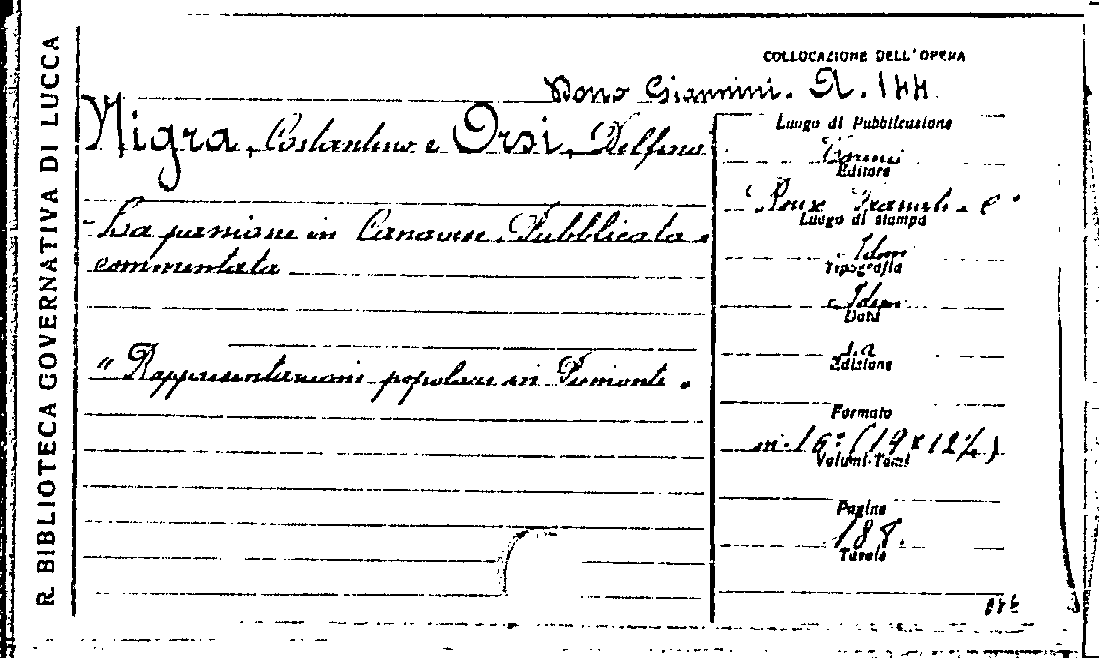 R. BIBLIOTECA GOVERNATIVA DI LUCCA
COLLOCAZIONE DELL'OPERA
Dono Giannini. A. 144
Nigra, Costantino e Orsi, Delfino
- La passione in Canavese. Pubblicata e
commentata
"Rappresentazioni popolari in Piemonte"
Luogo di Pubblicazione
Torino
Editore
Roux Frassati e C°
Luogo di stampa
Idem
Tipografia
Idem
Data
s. a
Edizione
Formato
in-16° (19 x 12½)
Volumi-Tomi
Pagine
188.
Tavole